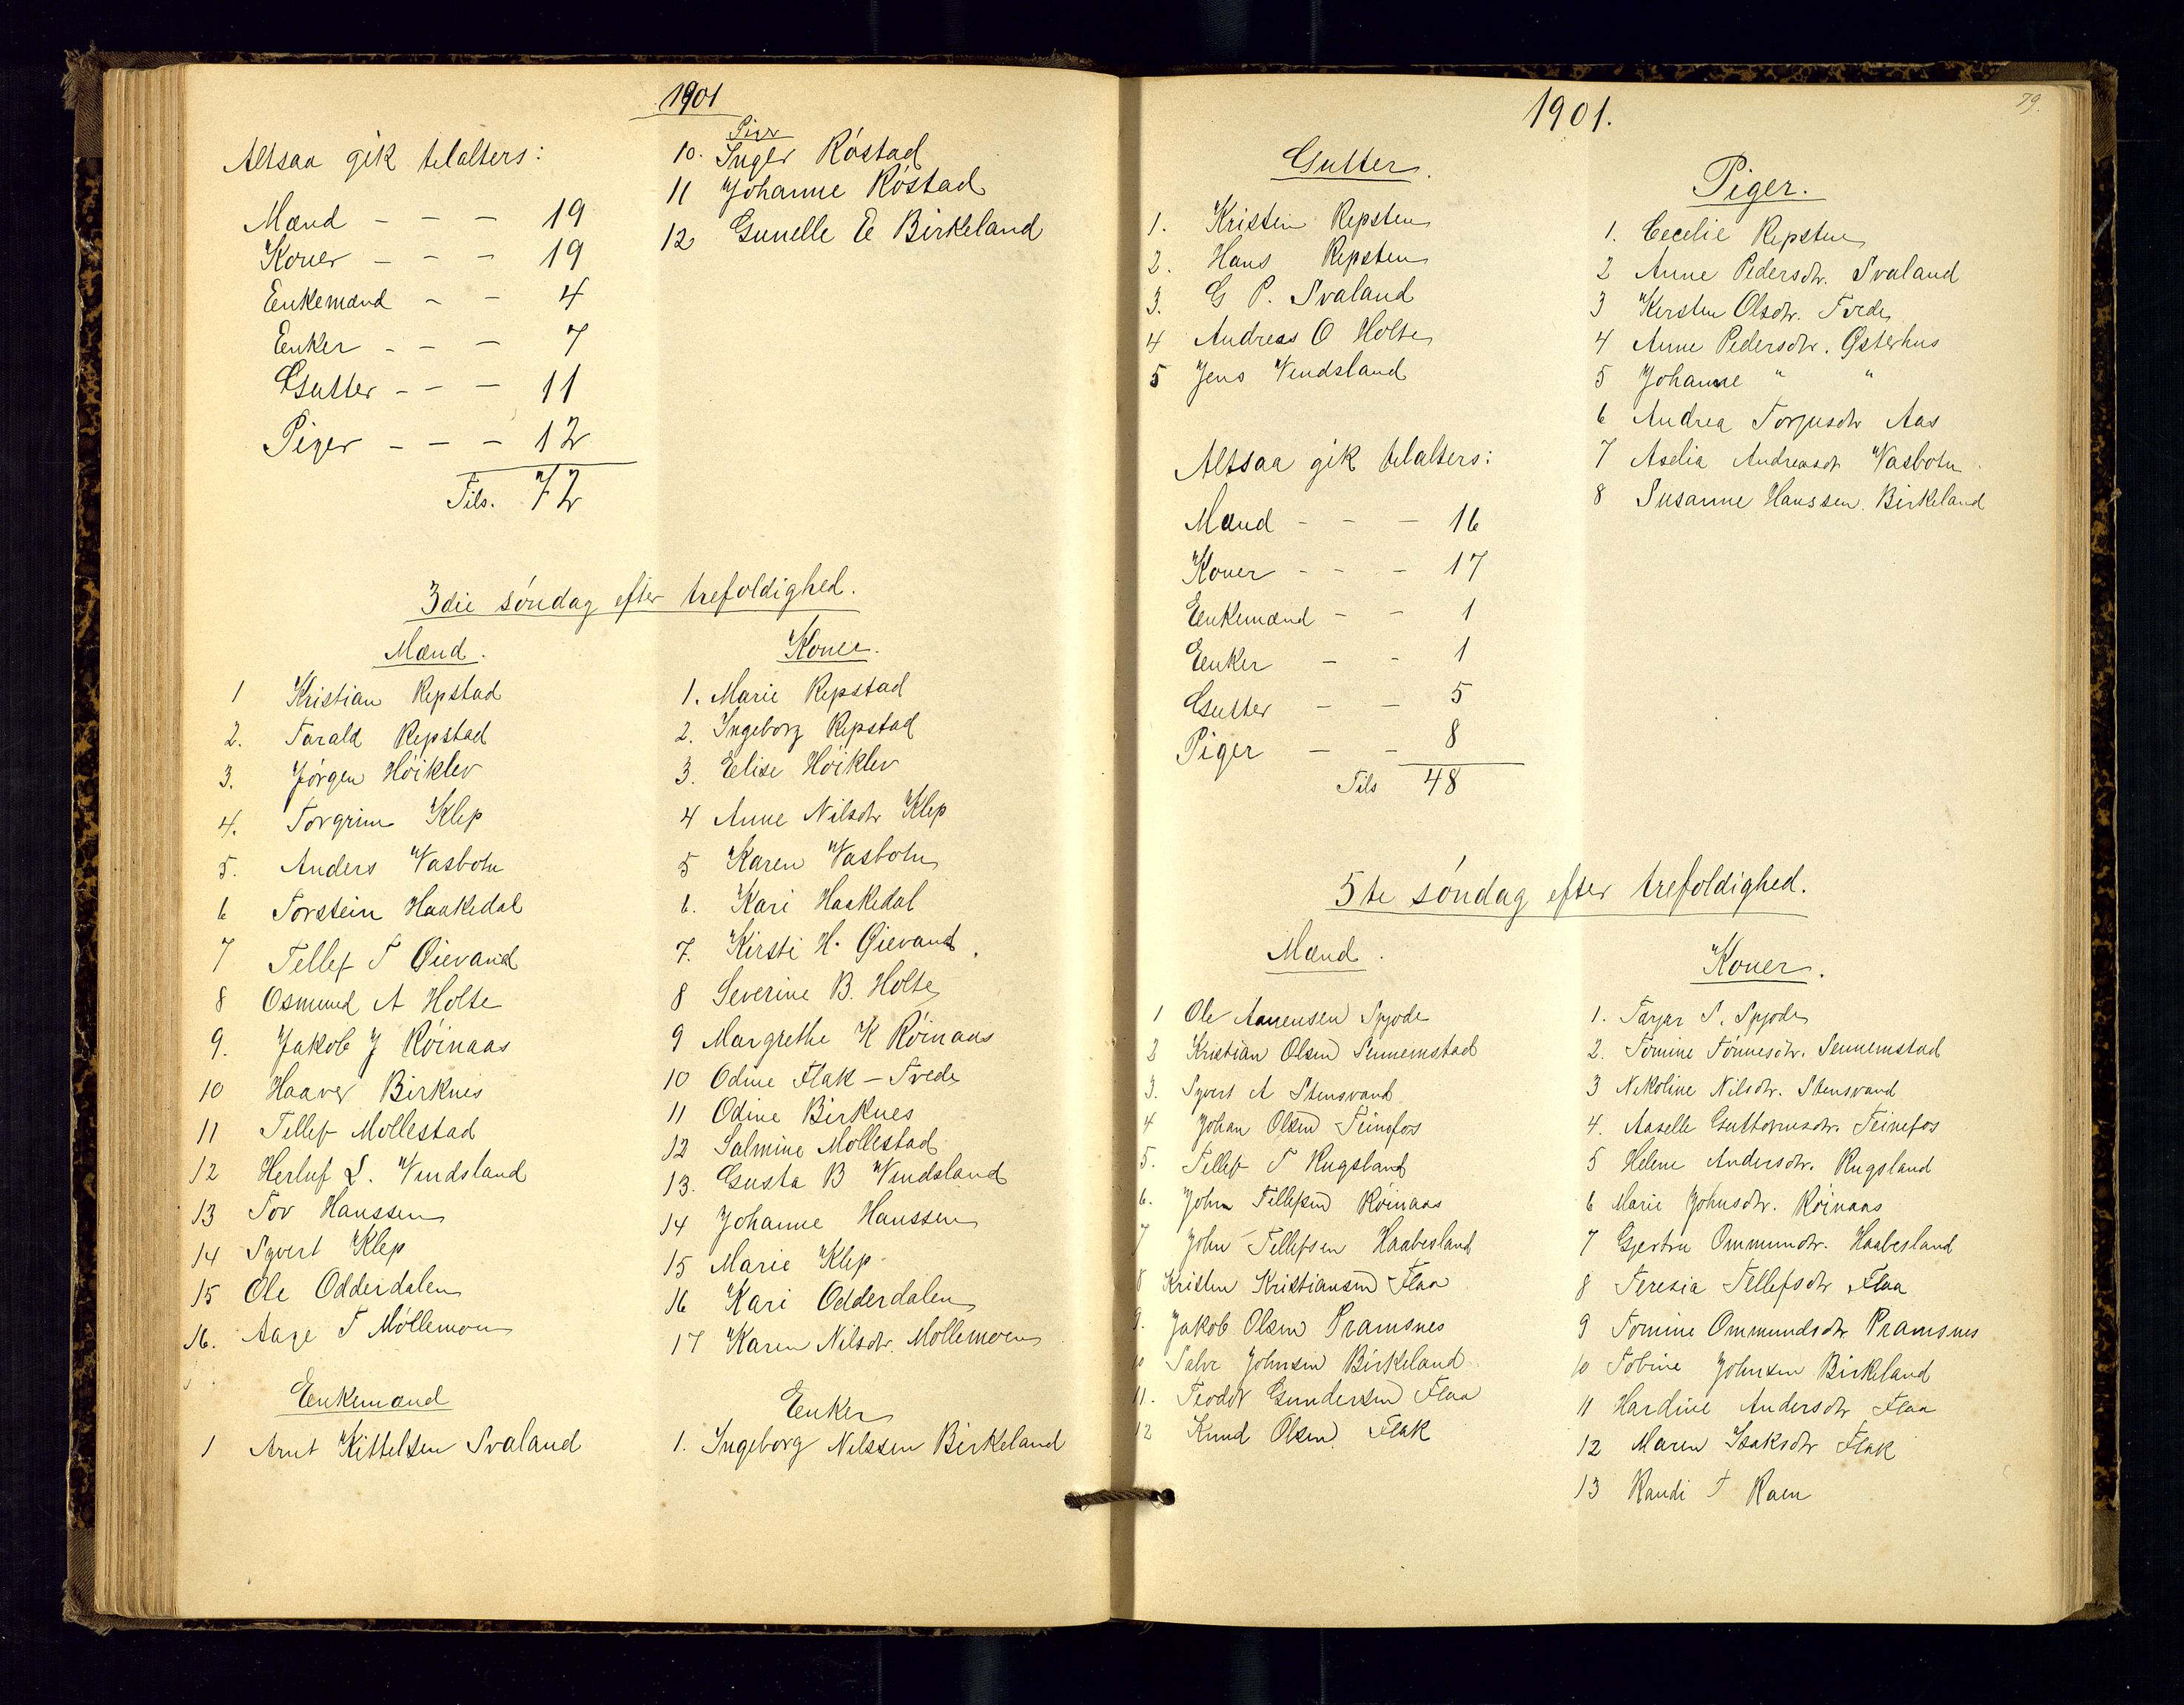 1901
Altsaa gik tilalters:
Mænd - - - 19
Koner - - - 19
Enkemænd - - 4
Enker - - - 7
Gutter - - - 11
Piger - - - 12
Tils. 72
Piger
10. Inger Róstad
11 Johanne Róstad
12 Gunelle E Birkeland
3die søndag efter trefoldighed.
Mænd.
1 Kristian Repstad
2. Tarald Repstad
3. Jórgen Hóiklev
4. Torgrim Klep
5. Anders Vasbotn
6 Torstein Haakedal
7 Tellef T Øievand
8 Osmund A Holte
9. Jakob J Róinaas
10 Haaver Birknes
11 Tellef Mollestad
12 Herluf L. Vindsland
13 Tov Hanssen
14 Syvert Klep
15 Ole Odderdalen
16. Aage T Móllemoen
Enkemænd
1 Arnt Kittelsen Svaland
Koner.
1. Marie Repstad
2. Ingeborg Repstad
3. Elise Hóiklev
4 Anne Nilsdtr Klep
5 Karen Vasbotn
6. Kari Haakedal
7. Kirsti H. Øievand.
8 Severine B. Holte
9 Margrethe K Róinaas
10 Odine Flak - Tvede
11 Odine Birknes
12 Salmine Mollestad
13. Gusta B Vindsland
14 Johanne Hanssen
15 Marie Klep
16 Kari Odderdalen
17 Karen Nilsdtr. Mollemoen
Enker
1. Ingeborg Nilssen Birkeland
79.
1901.
Gutter.
1. Kristen Repsten
2. Hans Repsten
3. G P. Svaland
4 Andreas O Holte
5 Jens Vindsland
Altsaa gik tilalters:
Mænd - - - 16
Koner - - - 17
Enkemænd - - 1
Enker - - 1
Gutter - - 5
Piger - - 8
Tils 48
Piger.
1. Cecelie Repsten
2 Anne Pedersdtr. Svaland
3 Kersten Olsdtr. Tvede
4 Anne Pedersdtr. Østerhus
5 Johanne " "
6 Andrea Torjusdtr Aas
7 Aselia Andreasdtr Vasbotn
8 Susanne Hanssen. Birkeland
5te søndag efter trefoldighed.
Mænd.
1 Ole Aanensen Spjode
2 Kristian Olsen Sennemstad
3. Syvert A Stensvand
4 Johan Olsen Teinefos
5. Tellef T Rugsland
6. John Tellefsen Róinaas
7 John Tellefsen Haabesland
8 Kristen Kristiansen Flaa
9. Jakob Olsen Pramsnes
10 Salve Johnsen Birkeland
11. Teodor Gundersen Flaa
12 Knud Olsen Flak
Koner.
1. Tarjer S. Spjode
2. Tomine Tónnesdtr. Sennemstad
3 Nikoline Nilsdtr. Stensvand
4. Aaselle Guttormsdtr. Teinefos
5 Helene Andersdtr. Rugsland
6 Marie Johnsdtr. Róinaas
7 Gjertru Ommundtr. Haabesland
8 Teresia Tellefsdtr Flaa
9 Tomine Ommundsdtr Pramsnes
10 Tobine Johnsen Birkeland
11 Hardine Andersdtr Flaa
12 Maren Isaksdtr Flak
13 Randi T Ramn